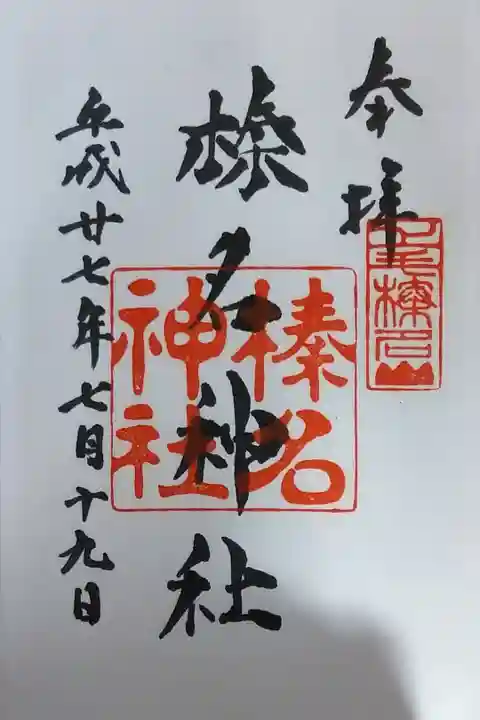 奉拝
榛名神社
平成廿七年七月十九日
榛名
神社